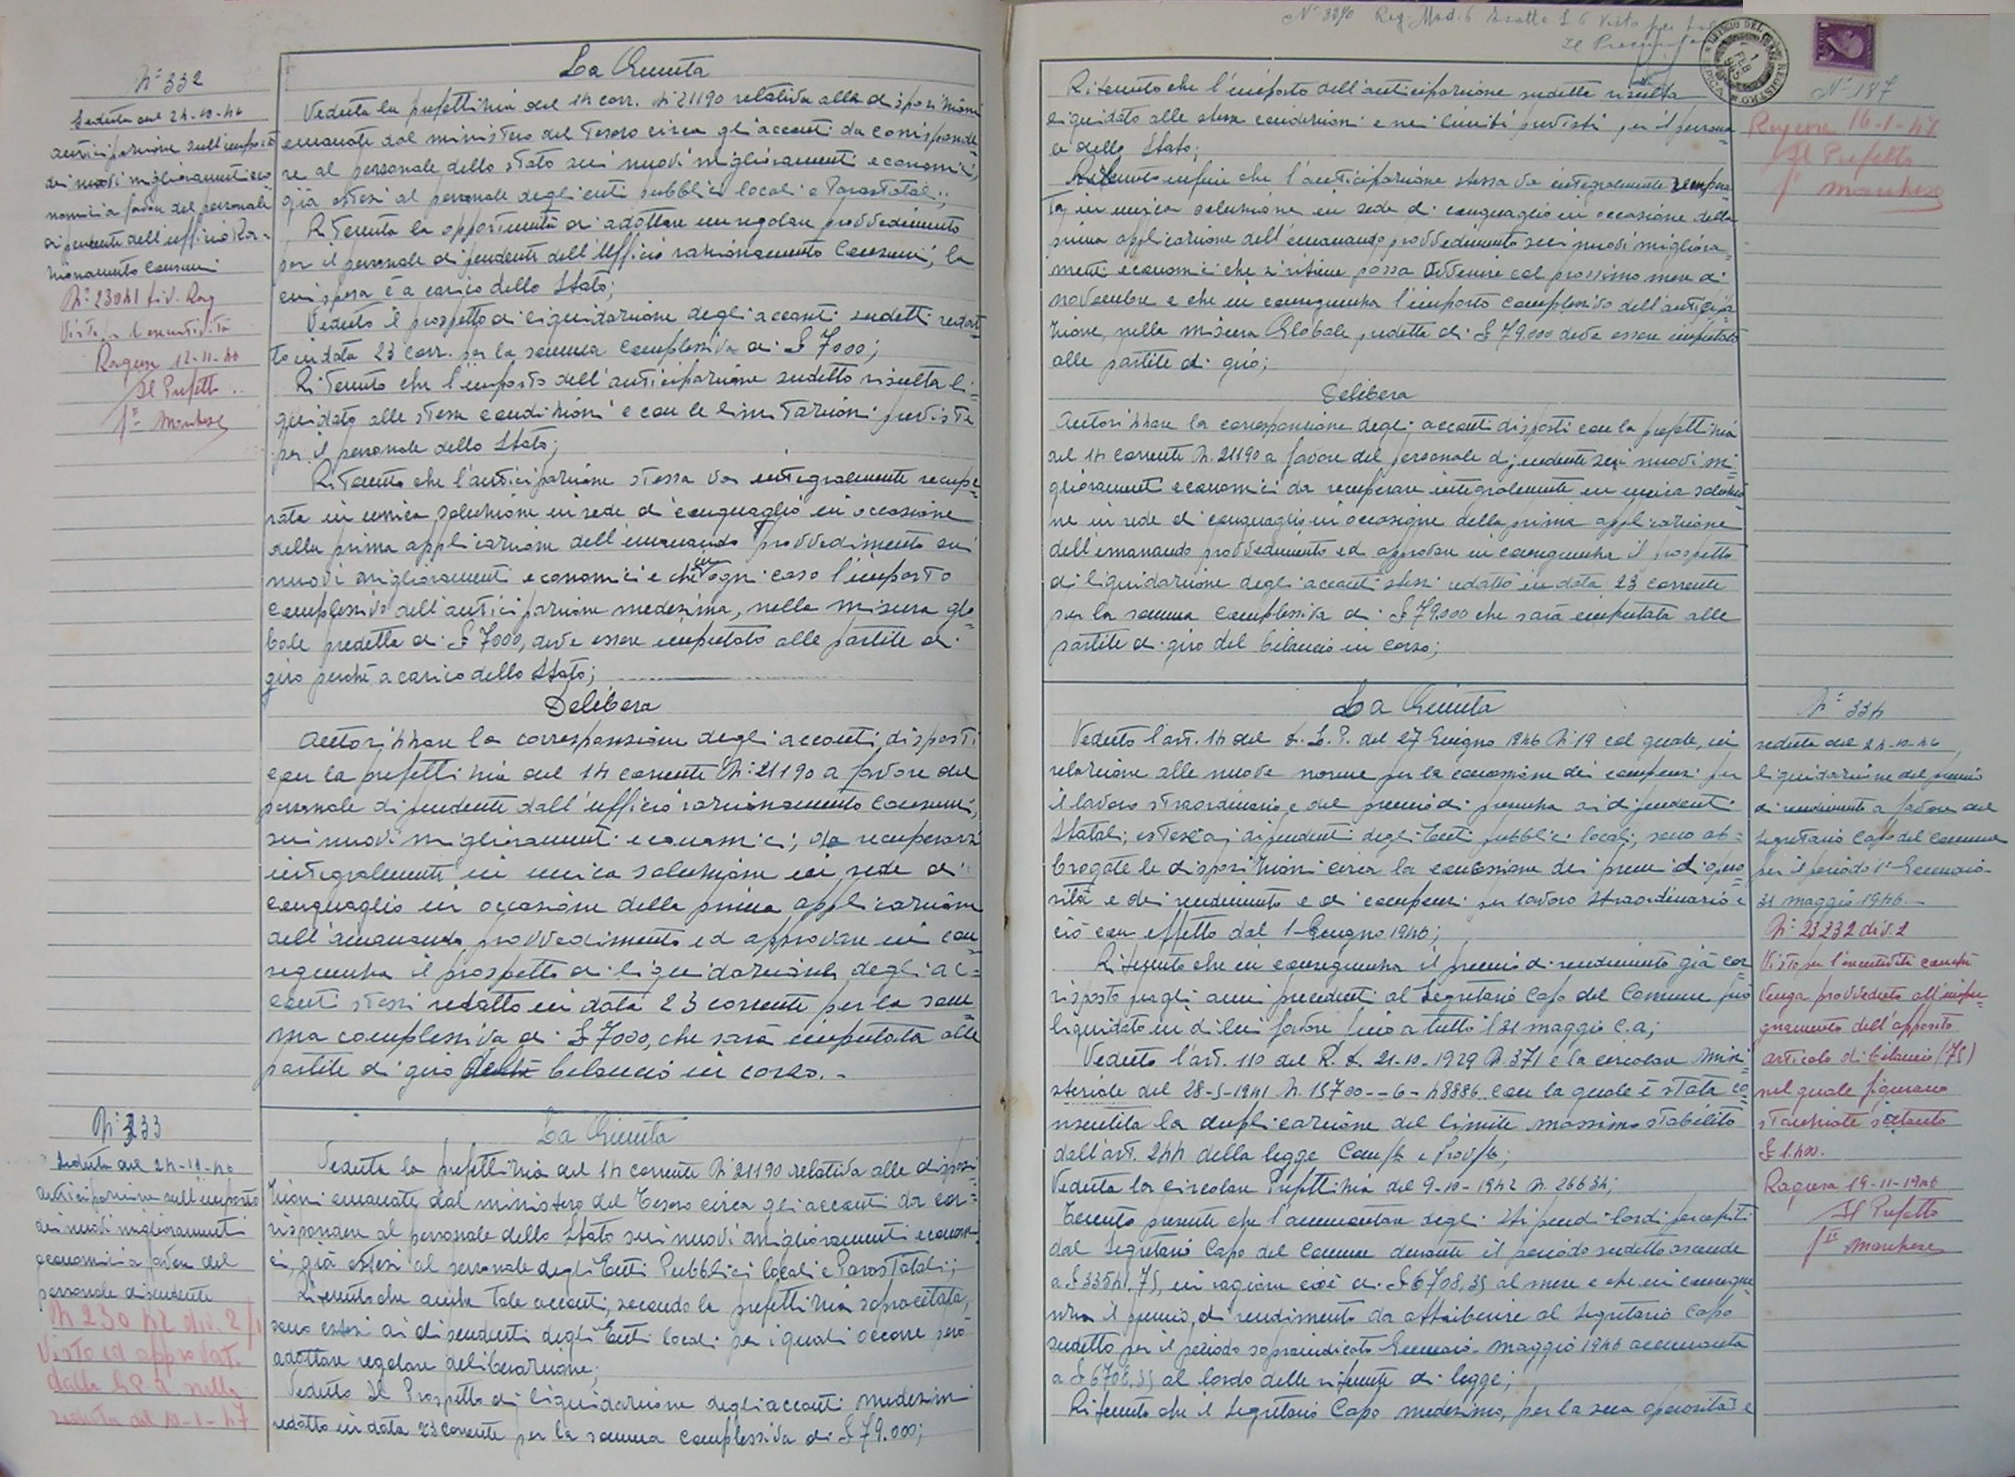 N° 332
Seduta del 24-10-46
anticipazione sull'importo
dei nuovi miglioramenti eco
nomici a favore del personale
dipendente dell'ufficio Ra-
zionamento Consumi
N° 23041 div. Rag
Visto per l'esecutività
Ragusa 12-11-46
Il Prefetto
fto Marchese
La Giunta
Veduta la prefettizia del 14 corr. N° 21190 relativa alla disposizioni
emanate dal ministero del Tesoro circa gli acconti da corrisponde
re al personale dello Stato sui nuovi miglioramenti economici,
già estesi al personale degli enti pubblici locali e Parastatali;
Ritenuta la opportunità di adottare un regolare provvedimento
per il personale dipendente dell'Ufficio razionamento Consumi, la
cui spesa è a carico dello Stato;
Veduto il prospetto di liquidazione degli acconti sudetti redat
to in data 23 corr. per la somma complessiva di £ 7000;
Ritenuto che l'importo dell'anticipazione sudetto risulta li-
quidato alle stesse condizioni e con le limitazioni previste
per il personale dello Stato;
Ritenuto che l'anticipazione stessa va integralmente recupe
rata in unica soluzione in sede di conguaglio in occasione
della prima applicazione dell'emanando provvedimento sui
nuovi miglioramenti economici e che in ogni caso l'importo
complessivo dell'anticipazione medesima, nella misura glo
bale predetta di £ 7000, deve essere imputato alle partite di
giro perché a carico dello Stato;
Delibera
Autorizzare la corresponsione degli acconti disposti
con la prefettizia del 14 corrente N° 21190 a favore del
personale dipendente dall'ufficio razionamento Consumi,
sui nuovi miglioramenti economici, da recuperarsi
integralmente in unica soluzione in sede di
conguaglio in occasione della prima applicazione
dell'emanando provvedimento ed approvare in con
seguenza il prospetto di liquidazione degli ac-
conti stessi redatto in data 23 corrente per la som
ma complessiva di £ 7000, che sarà imputata alle
partite di giro bilancio in corso.-
N° 333
Seduta del 24-10-46
Anticipazione sull'importo
dei nuovi miglioramenti
economici a favore del
personale dipendente
N 23042 div. 2/1
Visto ed approvat.
dalla G.P.A. nella
seduta del 10-1-47
La Giunta
Veduta la prefettizia del 14 corrente N° 21190 relativa alle disposi
zioni emanate dal ministero del Tesoro circa gli acconti da cor-
rispondere al personale dello Stato sui nuovi miglioramenti econom
ci, già estesi al personale degli Enti Pubblici locali e Parastatali;
Ritenuto che anche tale acconti, secondo la prefettizia sopracitata,
sono estesi ai dipendenti degli Enti locali per i quali occorre però
adottare regolare deliberazione;
Veduto Il Prospetto di liquidazione degli acconti medesimi
redatto in data 23 corrente per la somma complessiva di £ 79.000;
N° 3290 Reg. Mod. 6 Esatte £ 6 Visto per
Il
N° 187
Ragusa 16-1-47
Il Prefetto
fto Marchese
Ritenuto che l'importo dell'anticipazione sudetta risulta
liquidato alle stesse condizioni e nei limiti previsti per il persona
le dello Stato;
Ritenuto infine che l'anticipazione stessa va integralmente recupera
ta in unica soluzione in sede di conguaglio in occasione della
prima applicazione dell'emanando provvedimento sui nuovi migliora-
menti economici che si ritiene possa avvenire col prossimo mese di
novembre e che in conseguenza l'importo complessivo dell'anticipa
zione, nella misura Globale predetta di £ 79.000 deve essere imputato
alle partite di giro;
Delibera
Autorizzare la corresponsione degli acconti disposti con la prefettizia
del 14 corrente N. 21190 a favore del personale dipendente sui nuovi mi-
glioramenti economici da recuperare integralmente in unica soluzio
ne in sede di conguaglio in occasione della prima applicazione
dell'emanando provvedimento ed approvare in conseguenza il prospetto
di liquidazione degli acconti stessi redatto in data 23 corrente
per la somma complessiva di £ 79.000 che sarà imputata alle
partite di giro del bilancio in corso;
N° 334
seduta del 24-10-46
liquidazione del premio
di rendimento a favore del
Segretario Capo del Comune
per il periodo 1° Gennaio-
31 maggio 1946.-
N° 23232 div. 2
Visto per l'esecutività
venga provveduto all'impin-
guamento dell'apposito
articolo di bilancio (75)
nel quale figurano
stanziate soltanto
£ 1.400.
Ragusa 19-11-1946
Il Prefetto
fto Marchese
La Giunta
Veduto l'art. 14 del D.L.P. del 27 Giugno 1946 N. 19 col quale, in
relazione alle nuove norme per la concessione dei compensi per
il lavoro straordinario e del premio di presenza ai dipendenti
Statali, estese ai dipendenti degli Enti pubblici locali, sono ab-
brogate le disposizioni circa la concessione dei premi di opero
sità e di rendimento e di compensi per lavoro straordinario e
ciò con effetto dal 1-Giugno 1946;
Ritenuto che in conseguenza il premio di rendimento già cor
risposto per gli anni precedenti al Segretario Capo del Comune può
liquidato in di lui favore fino a tutto il 31 maggio C.a;
Veduto l'art. 110 del R.D. 21-10-1929 N. 371 e la circolare mini
steriale del 28-5-1941 N. 15700--6-48886 con la quale è stata co
nsentita la duplicazione del limite massimo stabilito
dall'art. 244 della legge Com/le e Prov/le;
Veduta la circolare Prefettizia del 9-10-1942 N. 26634;
Tenuto presente che l'ammontare degli stipendi lordi percepiti
dal Segretario Capo del Comune durante il periodo sudetto ascende
a £ 33541,75, in ragione cioè di £ 6708,35 al mese e che in consegue
nza il premio di rendimento da attribuire al Segretario Capo
sudetto per il periodo sopraindicato Gennaio-maggio 1946 ammonta
a £ 6708,35 al lordo delle ritenute di legge;
Ritenuto che il Segretario Capo medesimo, per la sua operosità e